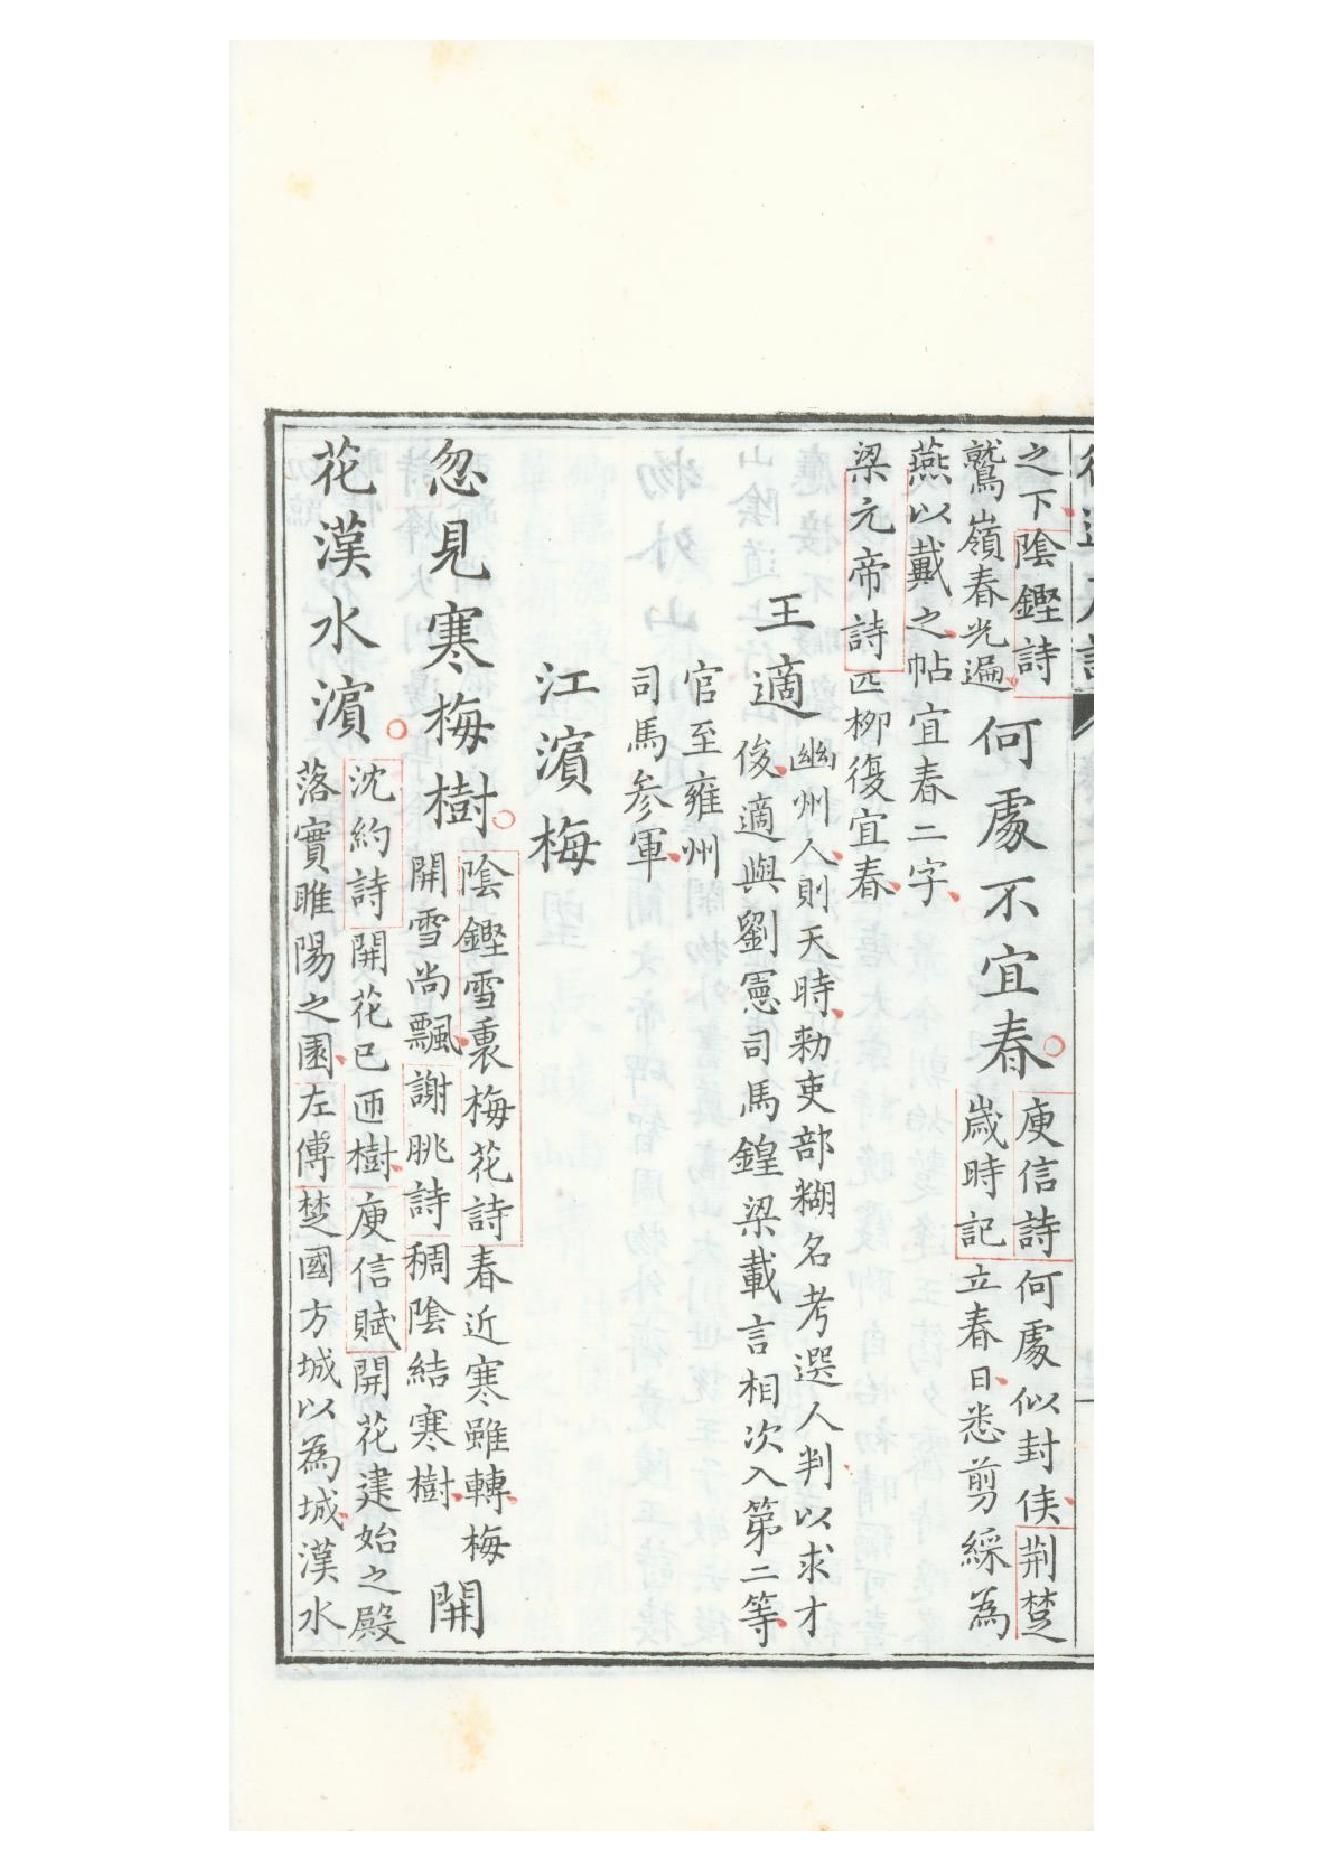 之下陰鏗詩
鷲嶺春光遍
何處不宜春
庾信詩何處似封侯荆楚
歲時記立春日悉剪綵為
燕以戴之帖宜春二字
梁元帝詩匹栁復宜春
王適
幽州人則天時勑吏部糊名考選人判以求才
俊適與劉憲司馬鍠梁載言相次入第二等
官至雍州
司馬参軍
江濱梅
忽見寒梅樹
陰鏗雪裏梅花詩春近寒雖轉梅
開雪尚飄謝朓詩稠陰結寒樹
開
花漢水濱
沈約詩開花已匝樹庾信賦開花建始之殿
落實睢陽之園左傳楚國方城以為城漢水